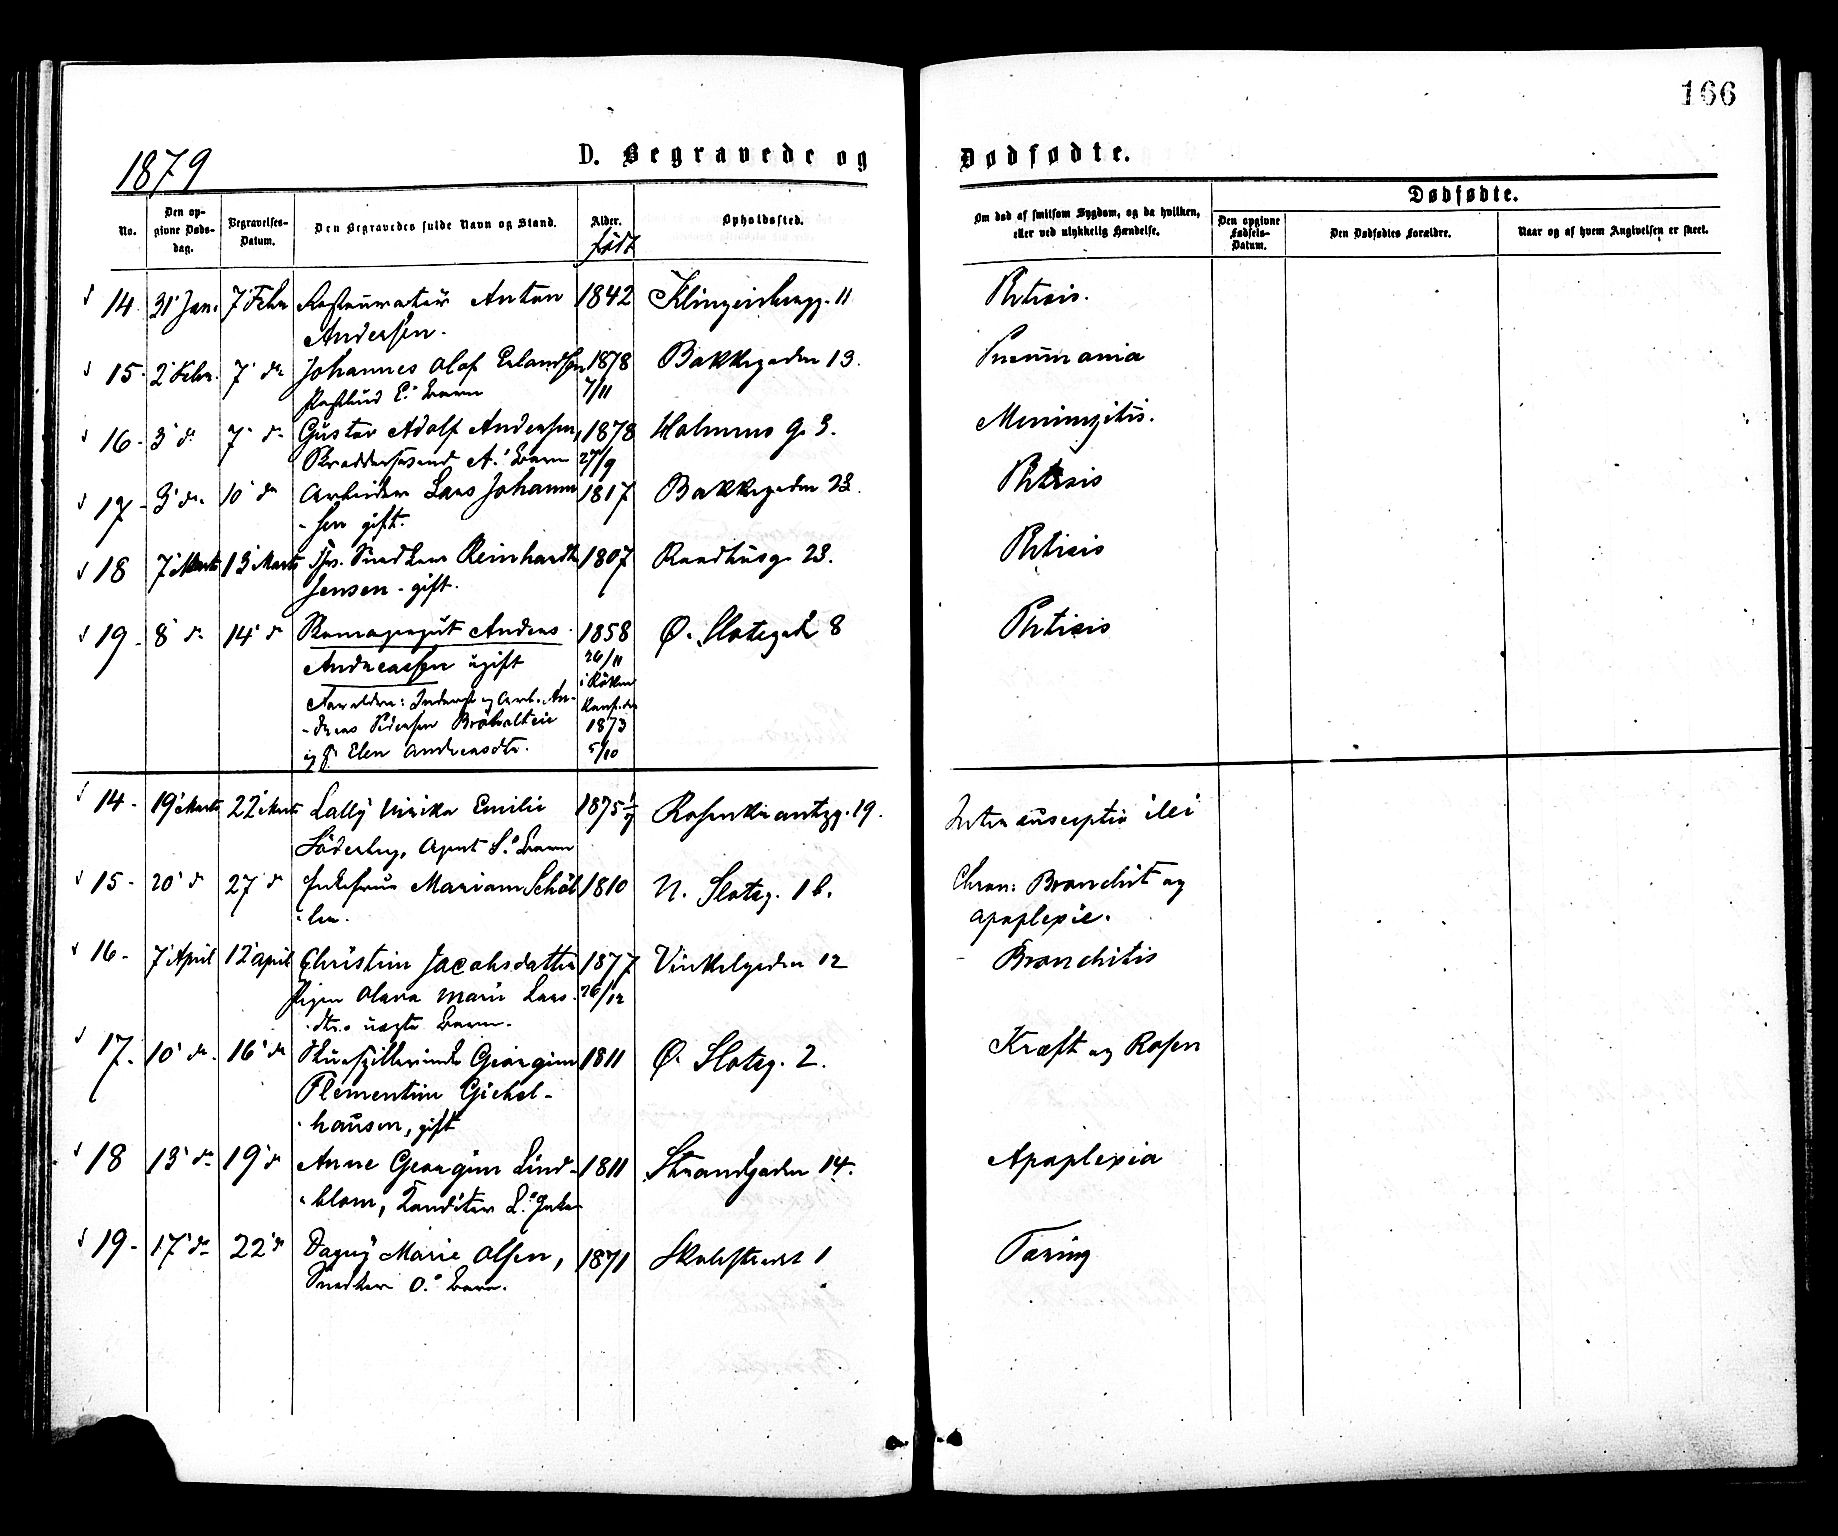 166
1879
D. Begravede og Dødfødte.
No.
Den opgivne Dødsdag.
Begravelses-Datum.
Den Begravedes fulde Navn og Stand.
Alder.
født
Opholdssted.
Om død af smitsom Sygdom, og da hvilken, eller ved ulykkelig Hændelse.
Dødfødte.
Den opgivne Fødsels-Datum.
Den Dødfødtes Forældre.
Naar og af hvem Angivelsen er skeet.
14. 31' Jan. 7' Febr Restauratør Anton 1842 Klingenbergg. 11 Phtisis.
Andersen.
15. 2' Febr. 7' do Johannes Olaf Erlandsen 1878 Bakkegaden 13. Pneumonia
Postbud E.s Barn 7/11
16. 3' do 7' do Gustav Adolf Andersen, 1878 Holmens G. 3. Meningitis.
Skræddersvend A.s Barn 27/9
17. 3' do 10' do Arbeider Lars Johann 1817 Bakkegaden 23. Phtisis
-sen gift.
18 7' Marts 13' Marts Snedker Reinhardt 1807 Raadhusg. 23. Phtisis
Jensen - gift.
19. 8' do 14' do Andreas 1858 Ø. Slotsgade 8 Phtisis
Andreassen ugift 26/11
Forældre: og Arb. An- i Röken
-dreas Pedersen 1873
og H. Elen Andreasdtr. 5/10
14. 19' Marts 22' Marts Lally Ulrika Emilie 1875 1/7 Rosenkrantzg. 19. Intussusceptio ilei
Söderberg, Agent S.s Barn
15. 20' do 27' do Enkefrue Mariam Schöl 1810 N. Slotsg. 1 b. Chron: Bronchit og
-len. apoplexie.
16. 7' April 12' April Christine Jacobsdatter 1877 Vinkelgaden 12 Bronchitis
Pigen Olava Marie Lars- 26/12
-dtr.s uægte Barn.
17. 10' do. 16' do Skuespillerinde Georgine 1811 Ø. Slotsg. 2. Kræft og Rosen
Clementine Gichel-
-hausen, gift
18 13' do 19' do Anne Georgine Lind- 1811 Strandgaden 14. Apoplexia
-blom, Konditor L.s Enke
19. 17' do 22' do Dagny Marie Olsen, 1871 Skolestrædet 1 Tæring
Snedker O.s Barn.